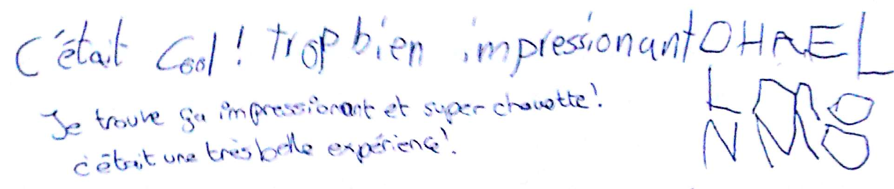 C'était Cool ! trop bien impressionant OHAEL
Je trouve ça impressionant et super chouette !
c'était une très belle expérience !